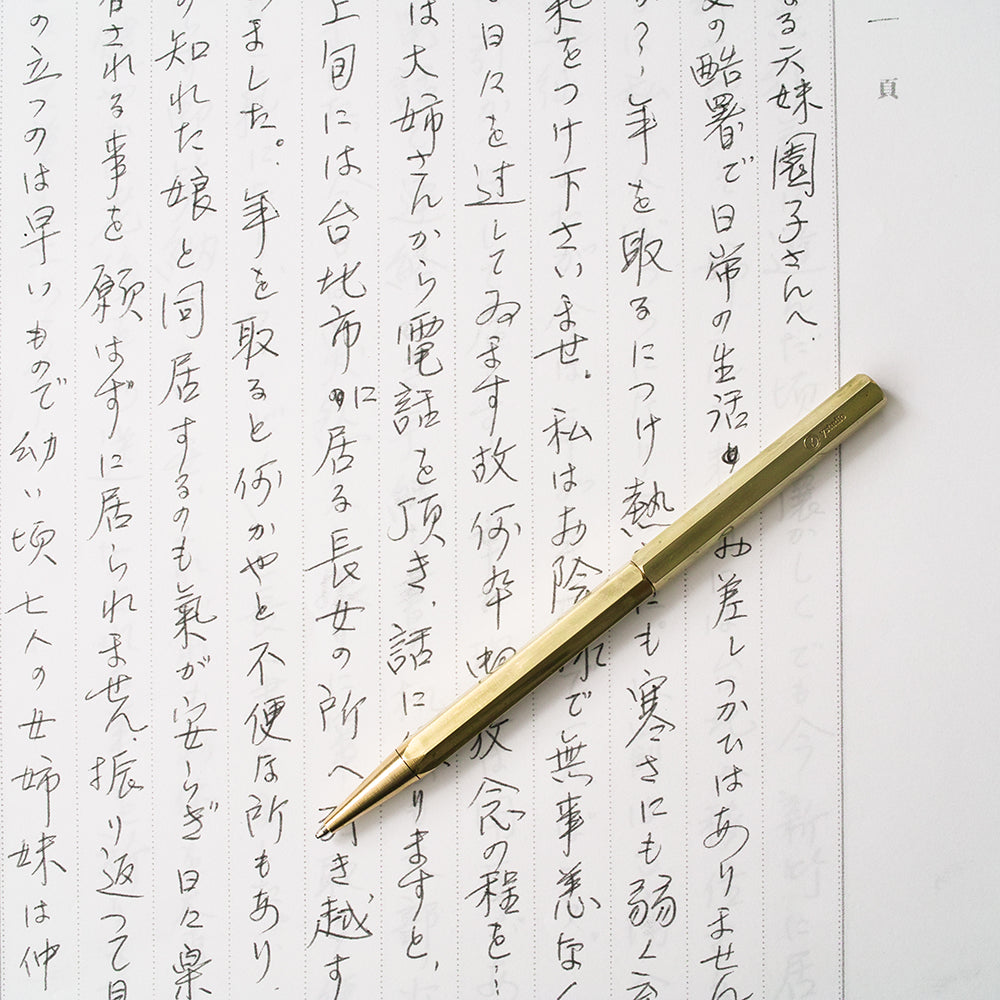 一頁
る六妹園子さんへ.
の酷署で日常の生活
お差しつかひはありません
?、年を取るにつけ熱
にも寒さにも弱く
をつけ下さいませ。私はお陰
で無事恙な
日々を过してゐます故何卒
放念の程を…
は大姉さんから電話を頂き、話に
りますと、
上旬には台北市に居る長女の所へ
き越す
ました。年を取ると何かやと不便な所もあり
知れた娘と同居するのも氣が安らぎ日々
される事を願はずに居られません、振り返つて
の立つのは早いもので幼い頃七人の女姉妹は仲